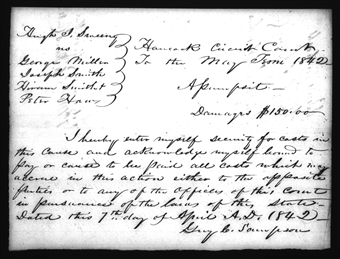 Hugh T. Sweeny
vs
George Miller
Joseph Smith
Hiram Smith &
Peter Haws
Hancock Circuit Court
To the May Term 1842
Assumpsit
Damages $150.00
I hereby enter myself security for costs in
this cause and acknowledge myself bound to
pay or cause to be paid all costs which may
accrue in this action either to the opposite
parties or to any of the officers of this Court
in pursuance of the laws of this state
Dated this 7th day of April A.D. 1842
Guy C. Sampson